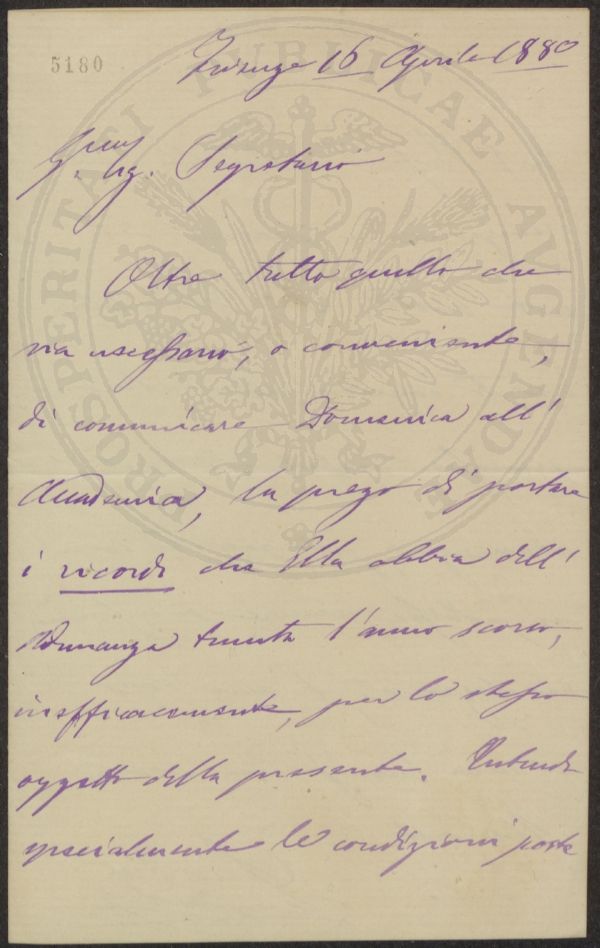 5180
PROSPERITATI PUBLICAE AUGENDAE
Firenze 16 Aprile 1880
Sig. Segretario
Oltre tutto quello che
sia necessario, o conveniente,
di comunicare Domenica all'
Accademia, la prego di portare
i ricordi che Ella abbia dell'
Adunanza tenuta l'anno scorso,
inefficacemente, per lo stesso
oggetto della presente. Intendo
specialmente le condizioni poste